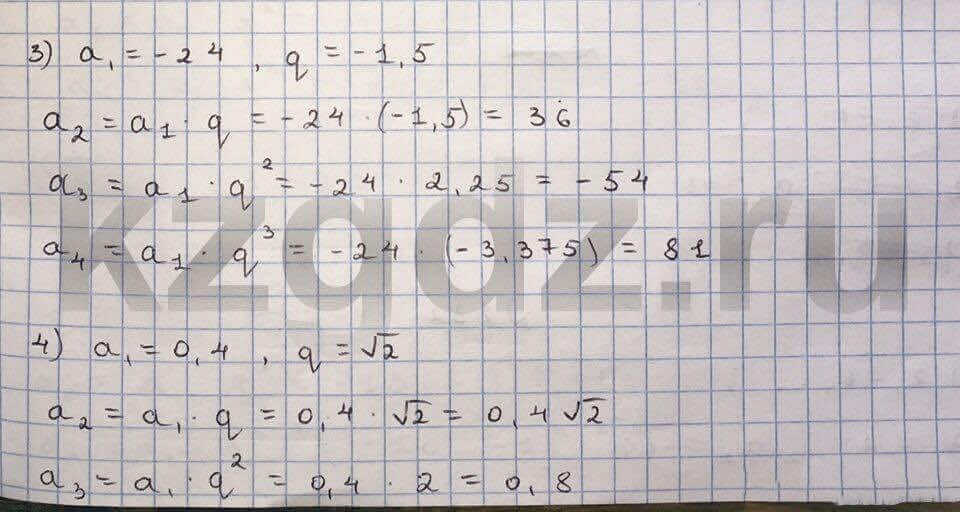 3) a₁ = -24, q = -1,5
a₂ = a₁ · q = -24 · (-1,5) = 36
a₃ = a₁ · q² = -24 · 2,25 = -54
a₄ = a₁ · q³ = -24 · (-3,375) = 81
kzgdz.ru
4) a₁ = 0,4, q = √2
a₂ = a₁ · q = 0,4 · √2 = 0,4√2
a₃ = a₁ · q² = 0,4 · 2 = 0,8